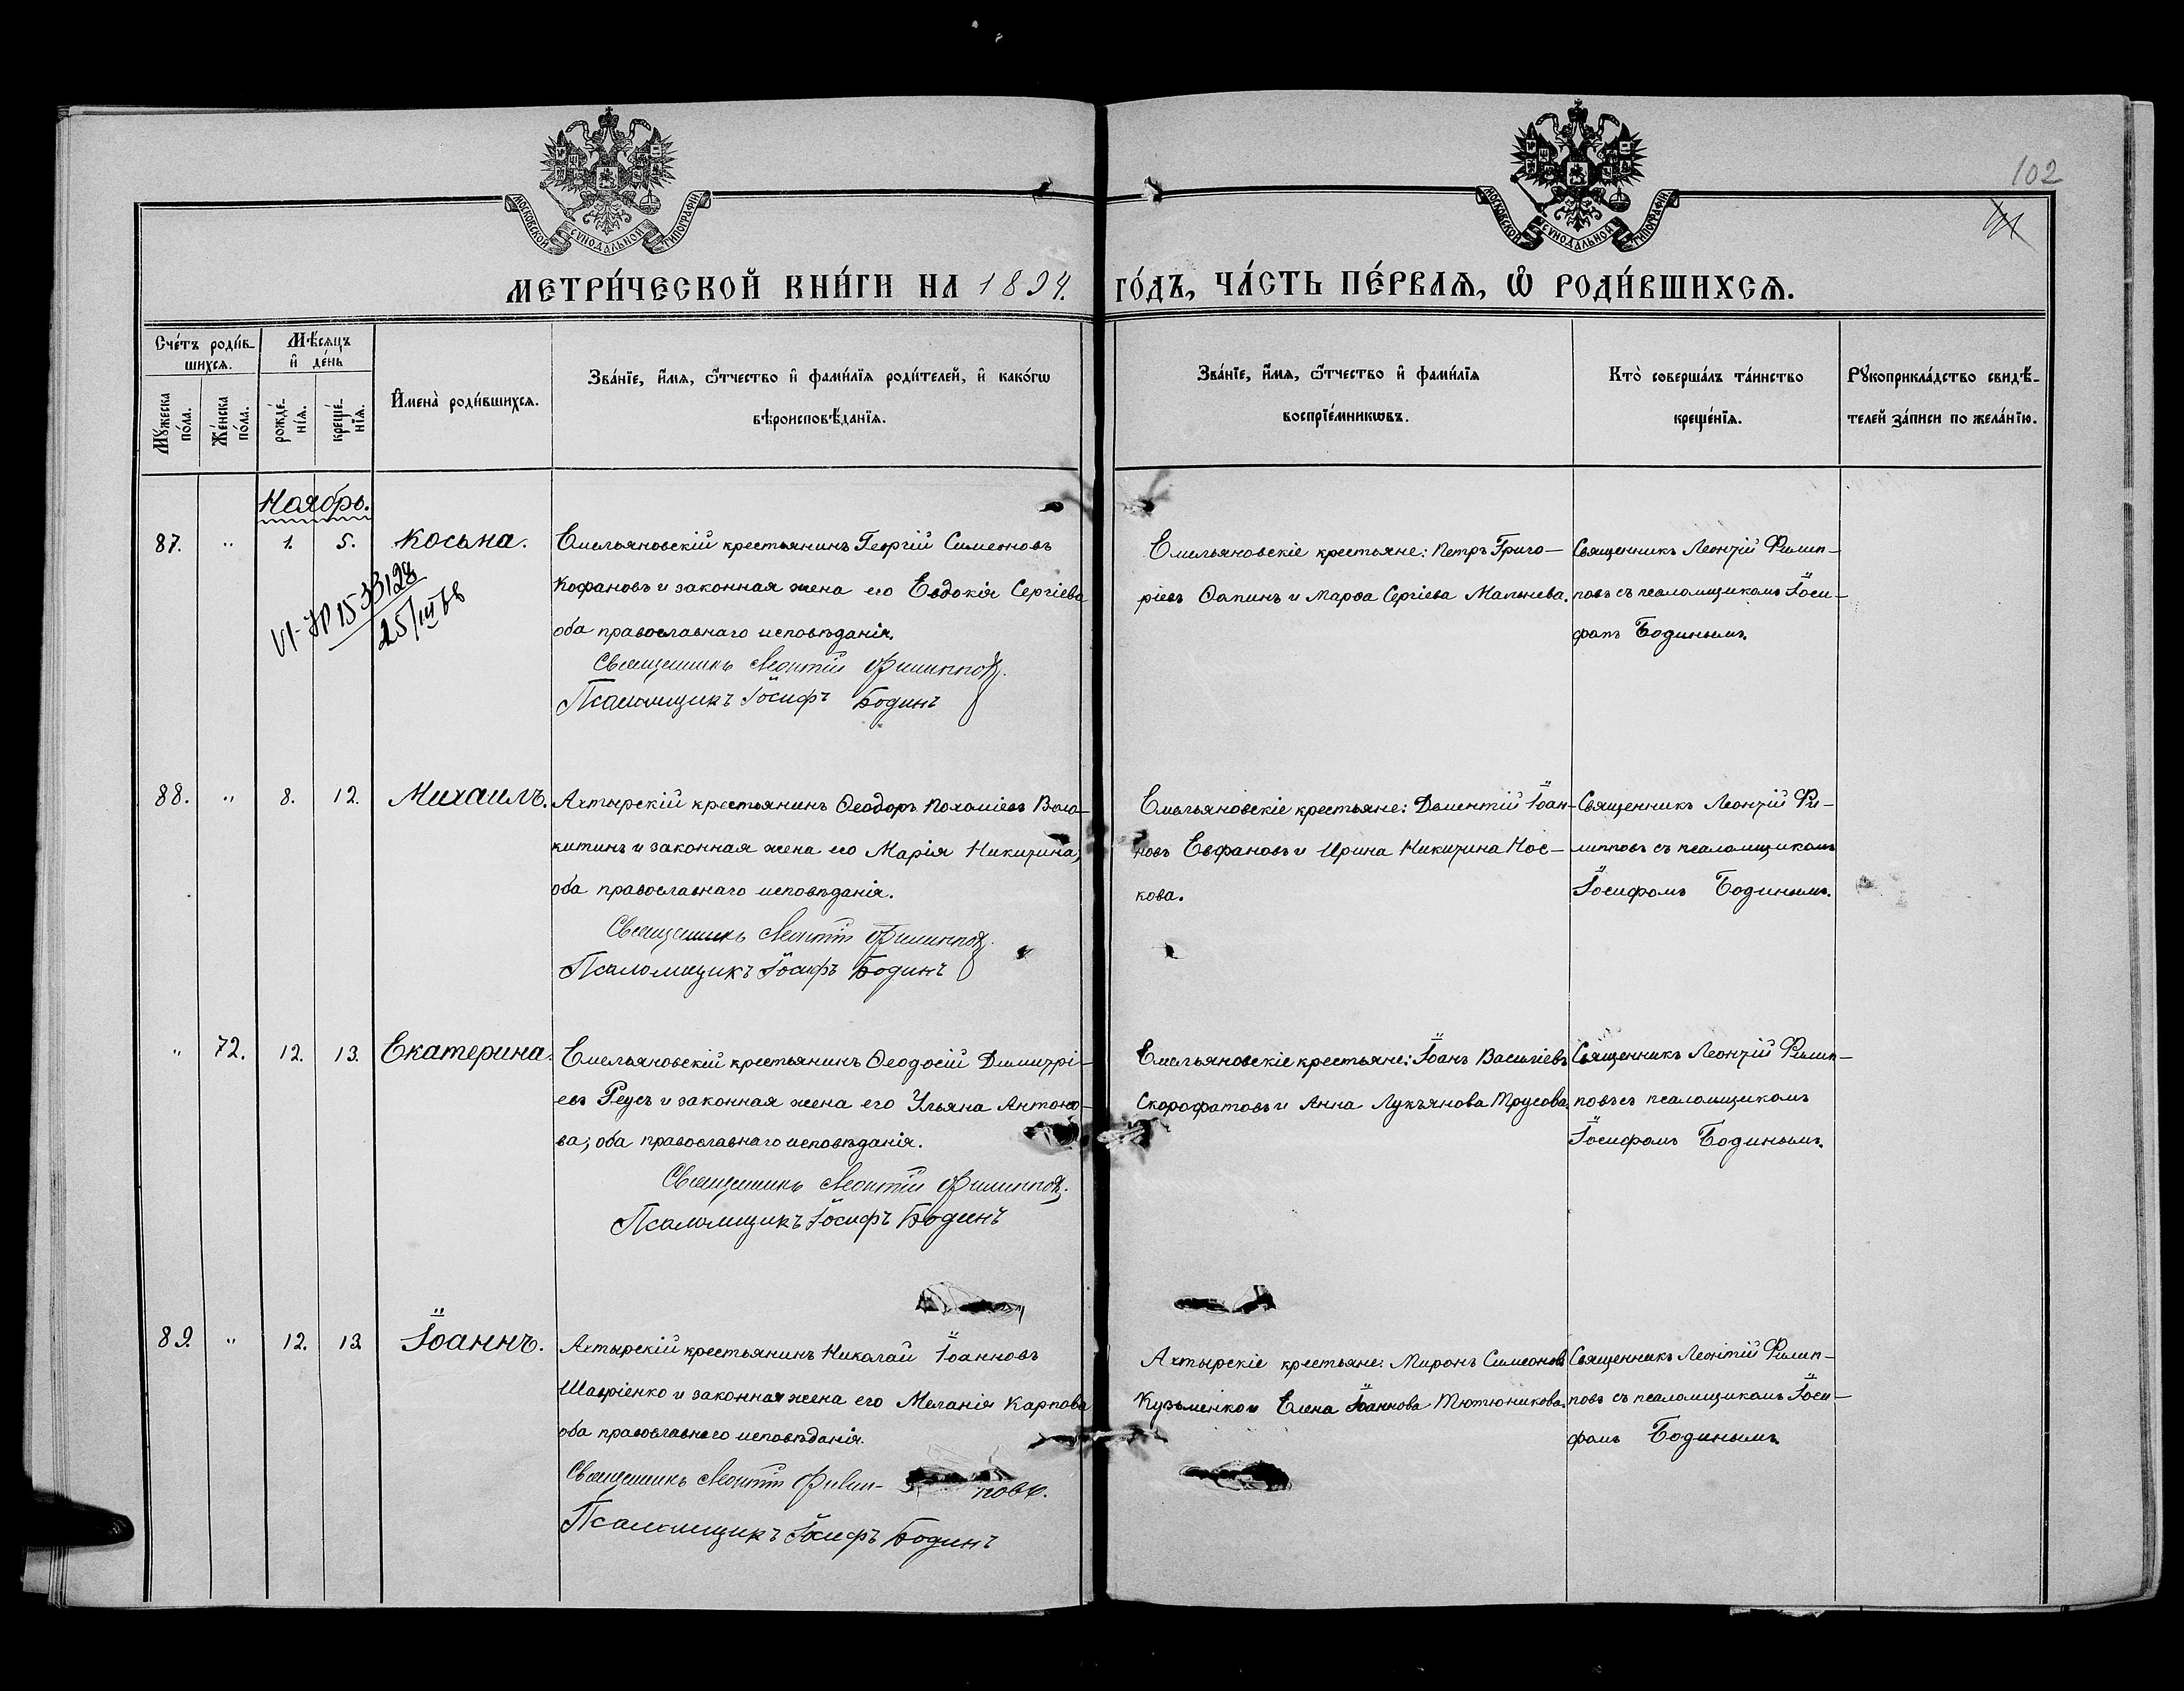 102
МОСКОВСКОЙ СѴНОДАЛЬНОЙ ТИПОГРАФІИ
МОСКОВСКОЙ СѴНОДАЛЬНОЙ ТИПОГРАФІИ
МЕТРИ́ЧЕСКОЙ КНИ́ГИ НА 1894. ГО́ДЪ, ЧА́СТЬ ПЕ́РВАЯ, Ѡ РОДИ́ВШИХСЯ.
Сче́тъ роди́в-
шихся.
Мѣ́сяцъ
и́ де́нь
Му́жеска
по́ла.
Же́нска
по́ла.
рожде́-
нія.
креще́-
нія.
Имена̀ роди́вшихся.
Зва́нїе, и́мя, ѻ́тчество и́ фами́лїя роди́телей, и́ како́гѡ
вѣроисповѣ́данїя.
Зва́нїе, и́мя, ѻ́тчество и́ фами́лїя
воспрїе́мникѡвъ.
Кто̀ соверша́лъ та́инство
креще́нїя.
Рꙋкоприкла́дство свидѣ́-
телей за́писи по жела́нїю.
Ноябрь.
87. „ 1. 5. Косьма.
Емельяновскій крестьянинъ Георгій Симеоновъ
Кофановъ и законная жена его Евдокія Сергіева
оба православнаго исповѣданія.
Священникъ Леонтій Филипповъ.
Псаломщикъ Іосифъ Бодинъ
Емельяновскіе крестьяне: Петръ Григо-
ріевъ и Марѳа Сергіева
Священникъ Леонтій Филип-
повъ съ псаломщикомъ Іоси-
фомъ Бодинымъ.
VI-ЯР 1533128
25/III 66
88. „ 8. 12. Михаилъ.
Ахтырскій крестьянинъ Ѳеодоръ Вола-
китинъ и законная жена его Марія Никитина,
оба православнаго исповѣданія.
Священникъ Леонтій Филипповъ.
Псаломщикъ Іосифъ Бодинъ
Емельяновскіе крестьяне: Дементій Іоан-
новъ Евфановъ и Ирина Никитина Нос-
кова.
Священникъ Леонтій Фи-
липповъ съ псаломщикомъ
Іосифомъ Бодинымъ.
„ 72. 12. 13. Екатерина.
Емельяновскій крестьянинъ Ѳеодосій Димитрі-
евъ Реусъ и законная жена его Ульяна Антоно-
ва; оба православнаго исповѣданія.
Священникъ Леонтій Филипповъ.
Псаломщикъ Іосифъ Бодинъ
Емельяновскіе крестьяне: Іоанъ Василіевъ
Скорофатовъ и Анна Лукъянова Трусова.
Священникъ Леонтій Филип-
повъ съ псаломщикомъ
Іосифомъ Бодинымъ.
89. „ 12. 13 Іоаннъ.
Ахтырскій крестьянинъ Николай Іоанновъ
и законная жена его Меланія Карпова
оба православнаго исповѣданія.
Священникъ Леонтій Филип-
повъ.
Псаломщикъ Іосифъ Бодинъ
Ахтырскіе крестьяне: Миронъ Симеоновъ
Кузьменко и Елена Іоаннова Тютюникова.
Священникъ Леонтій Филип-
повъ съ псаломщикомъ Іоси-
фомъ Бодинымъ.